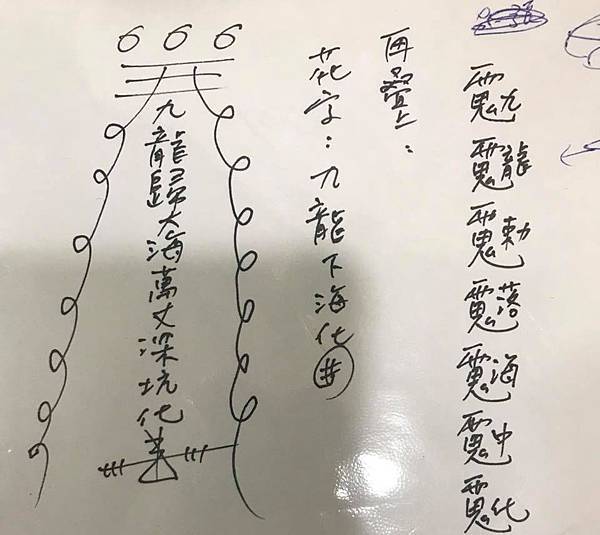 雨鬼九 雨鬼龍 雨鬼勅 雨鬼落 雨鬼海 雨鬼中 雨鬼化
再疊上：
花字：九龍下海化井
九龍歸大海萬丈深坑化